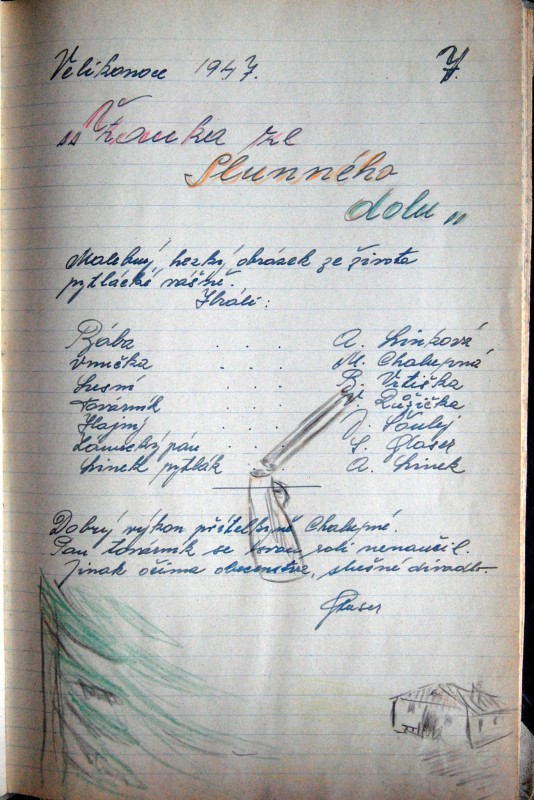 Velikonoce 1947. 7.
„Žouka ze
Slunného
dolu„
Malebný hezký obrázek ze života
pytlácké vášně.
Hráli:
Bába . . . A. Linková
vnučka . . . M. Chalupná
Lesní . . . B. Vitiška
továrník . . . V. Růžička
Hajný . . .
pán . . . Glaser
Linek pytlák . . A. Linek
Dobrý výkon přítelkyně Chalupné.
Pan továrník se svou roli nenaučil.
Jinak očima obecenstva, slušné divadlo.
Glaser